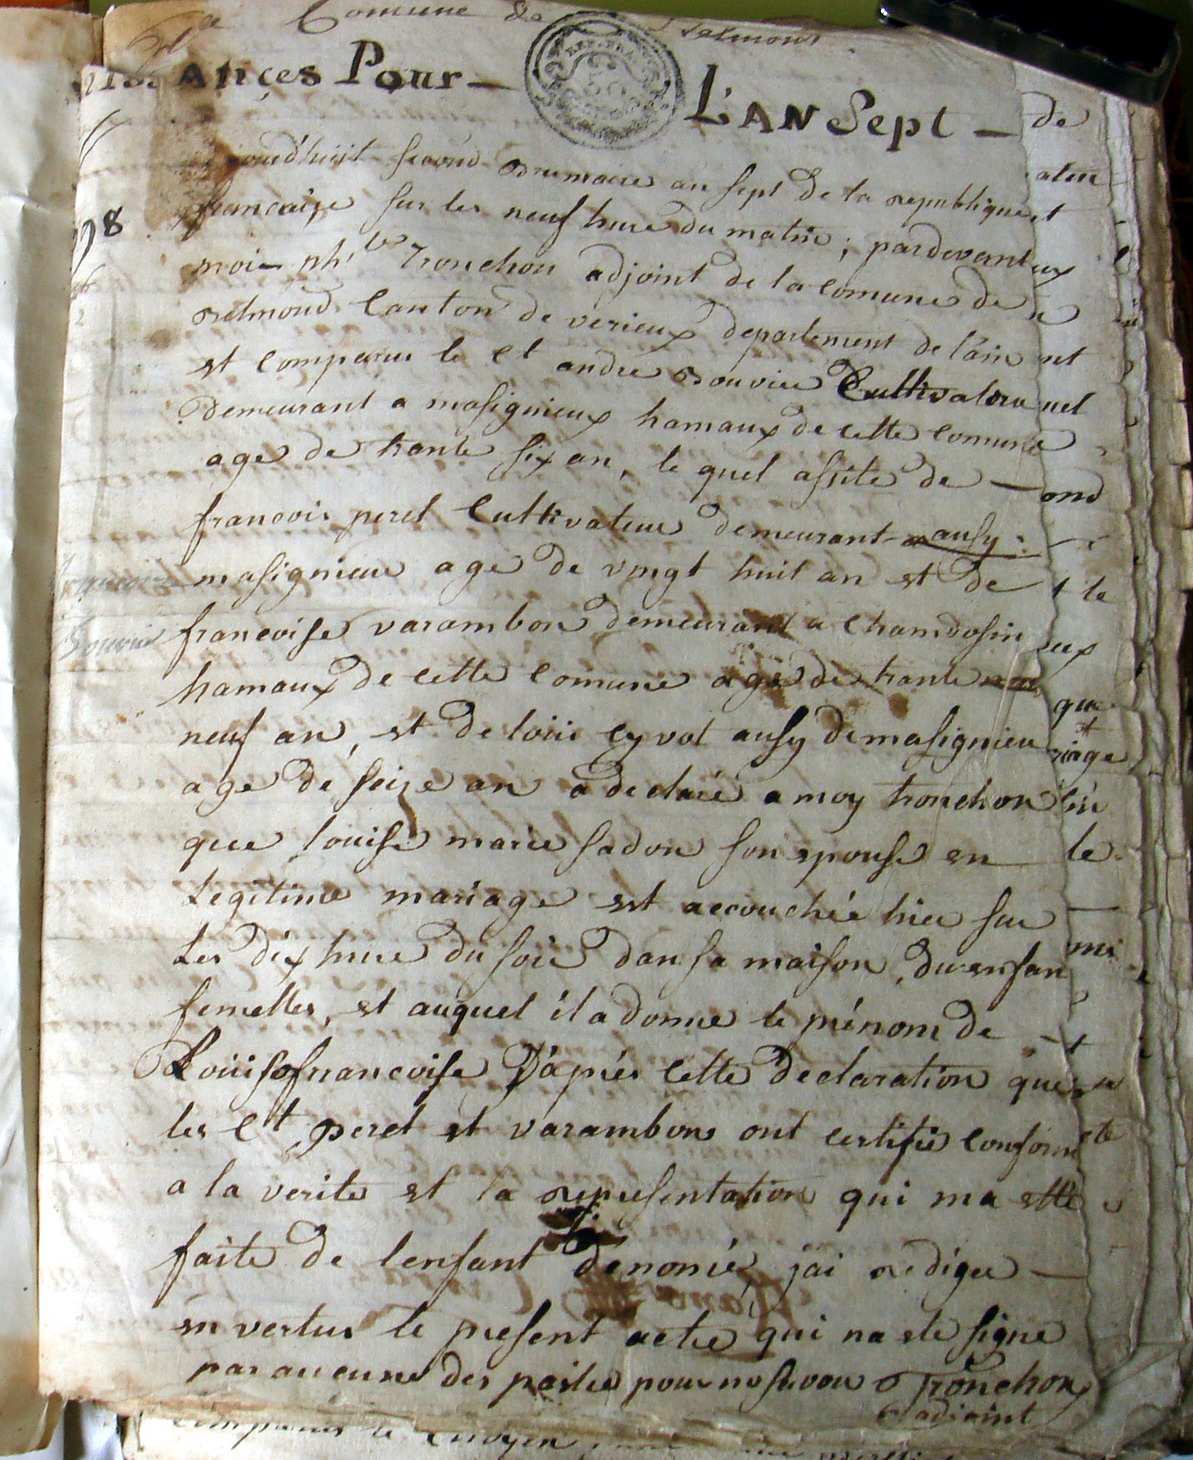 Comune de
ançes Pour — L'AN Sept —
jourd'huit second brumaire an sept de la republique
francaize sur les neuf hure du matin ; pardevant
moi Tronchon adjoint de la comune de
relmond Canton de verieux departement de l'ain
et comparus le Ct andre bouvier Cultivateur
demeurant a masignieux hamaux de cette comune
age de trante six an, le quel assite de —
francois peret Cultivateur demeurant a ausy
masignieu age de vingt huit an et de
francoise varambon demeurant a Chamdosin
hamaux de cette comune agé de trante
neuf an, et de loüis eyvol ausy de masignieu
age de seize an a declaré a moy tronchon
que louise marie sadon son epouse en
Legitime mariage est accouchée hier sur
Les dix hure du soir dan sa maison, du enfan
femelles, et auquel il a donne le prénom de
Loüise francoise D'aprés cette declaration que
les Ct peret et varambons ont certifie conforme
a la verite et la representation qui ma ette
faite de lenfant dénomé, j'ai redigee —
en vertus le present acte qui na ete signe
par aucune des parties pour ne savoir Tronchon
adjoint
comparus le Citoyen